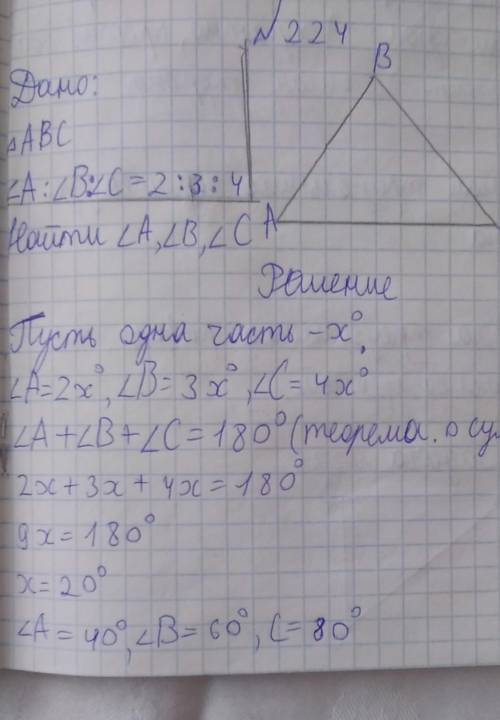 №224
Дано:
△ABC
∠A:∠B:∠C=2:3:4
Найти ∠A,∠B,∠C
B
A
Решение
Пусть одна часть –x°,
∠A=2x°,∠B=3x°,∠C=4x°
∠A+∠B+∠C=180°(теорема. о
2x+3x+4x=180°
9x=180°
x=20°
∠A=40°,∠B=60°,C=80°